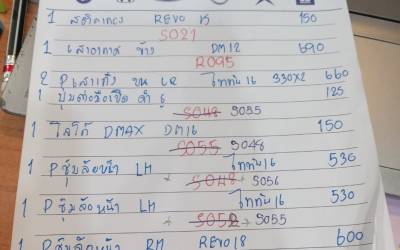 1 สติ๊กเกอร์ REVO 15 150
SO21
1 เสาอากาศ ข้าง DM12 690
RO95
2 P เสาเก๋ง บน LR ไททัน 16 330x2 660
1 ปุ่มดึงมือเปิด ดำ 125
SO48 SO55
1 โลโก้ DMAX DM16 150
SO55 SO48
1 P ซุ้มล้อหน้า LH ไททัน 16 530
SO48 SO56
1 P ซุ้มล้อหน้า LH ไททัน 16 530
SO52 SO55
1 P ซุ้มล้อหน้า RH REVO 18 600